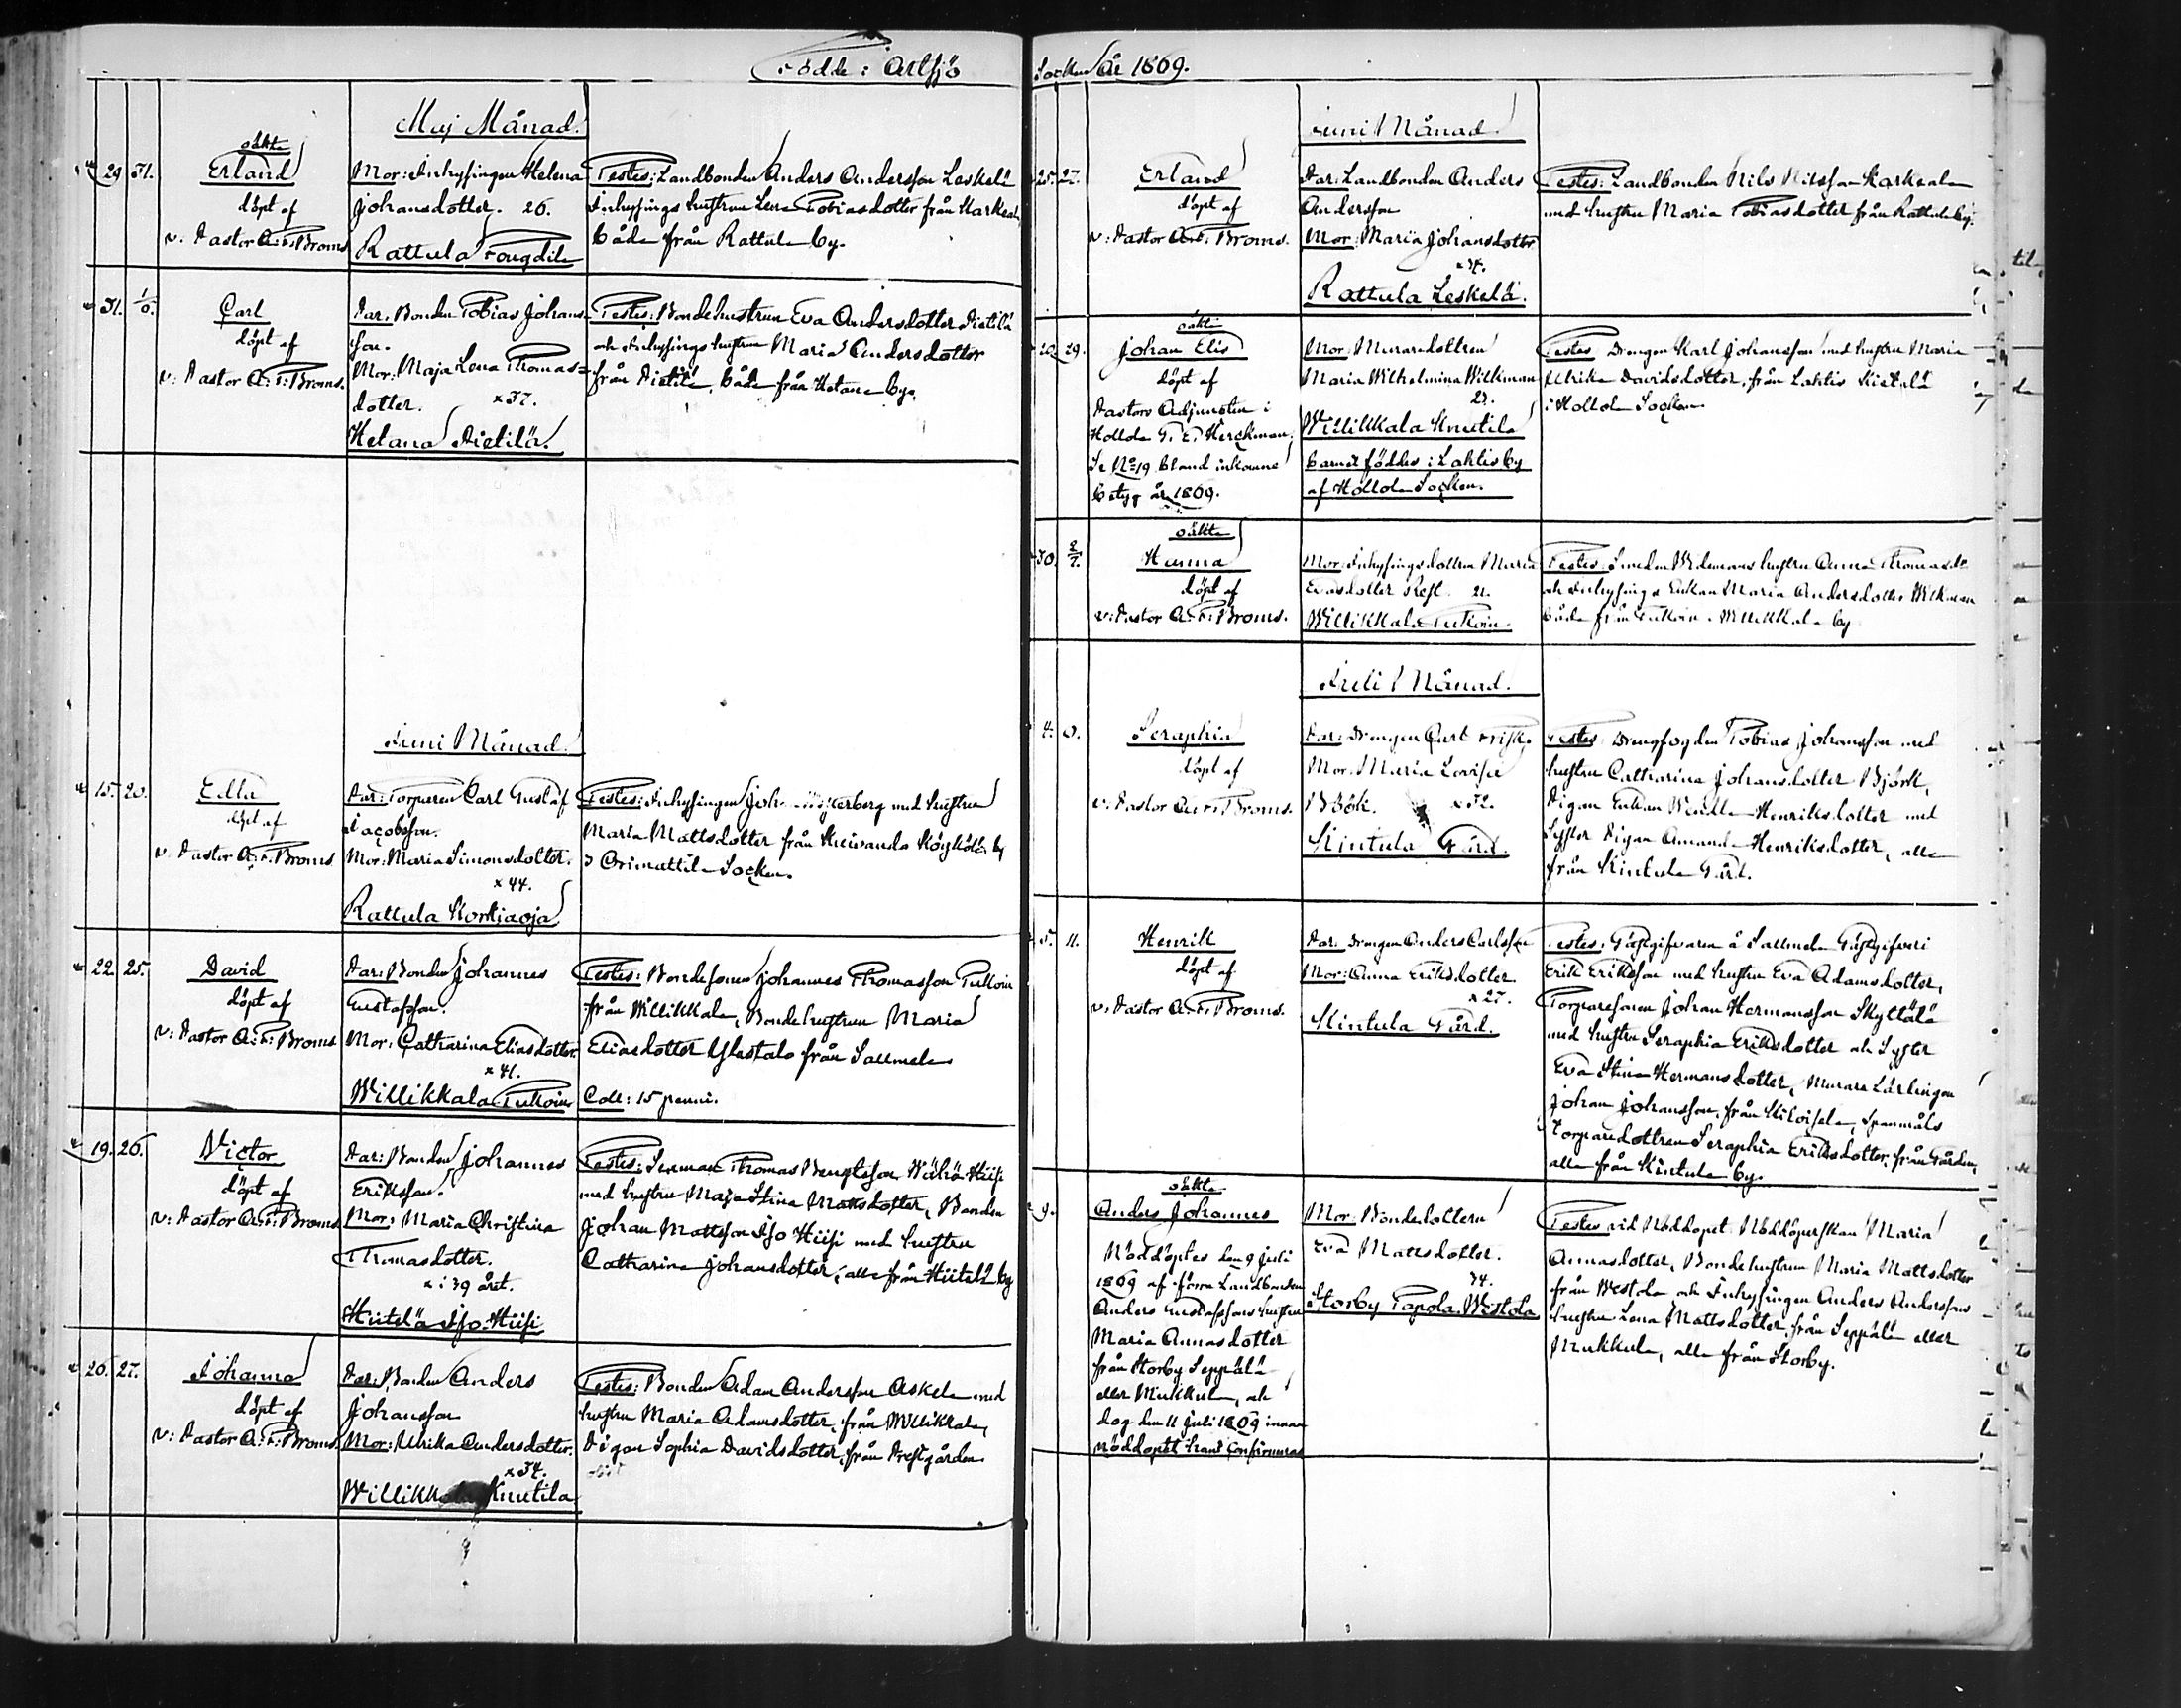 Födde i Artsjö
Maj Månad.
29 31.
oäkta
Erland
döpt af
v: Pastor A: F: Broms
Mor: Inhysingen Helena
Johansdotter. 26.
Rattula Fougdila
Testes: Landbonden Anders Andersson Leskelä
Inhysings hustrun Lena Tobiasdotter från Karkeala
båda från Rattula by.
31. 1/6.
Carl
döpt af
v: Pastor A: F: Broms.
Par. Bonden Tobias Johans-
son.
Mor: Maja Lena Thomas=
dotter. x 37.
Hetana Pietilä.
Testes: Bondehustrun Eva Andersdotter Pietilä
och Inhysings hustrun Maria Andersdotter
från Pietilä, båda från Hetane by.
Juni Månad.
15. 20.
Edla
döpt af
v: Pastor A: F: Broms
Par: Torparen Carl Gustaf
Jacobsson.
Mor: Maria Simonsdotter.
x 44.
Rattula Korkiaoja
Testes: Inhysingen Joh. med hustrun
Maria Mattsdotter från Kuivanda by
i Orimattila Socken.
22. 25.
David
döpt af
v: Pastor A: F: Broms
Par: Bonden Johannes
Gustafsson.
Mor: Catharina Eliasdotter.
x 41.
Willikkala Tukoin
Testes: Bondesonen Johannes Thomasson Tukoin
från Willikkala, Bondehustrun Maria
Eliasdotter Ylastalo från Sallmela
Coll: 15 penni.
19. 26.
Victor
döpt af
v: Pastor A: F: Broms
Par: Bonden Johannes
Eriksson.
Mor: Maria Christina
Thomasdotter.
x i 39 året.
Hiitelä Iso-Hiisi
Testes: Sexman Thomas Bengtsson Wähä Hiisi
med hustru Maja Stina Mattsdotter, Bonden
Johan Mattsson Iso Hiisi med hustru
Catharina Johansdotter, alla från Hiitelä by
26. 27.
Johanna
döpt af
v: Pastor A: F: Broms.
Par: Bonden Anders
Johansson
Mor: Ulrika Andersdotter.
x 34.
Willikkala Knutila
Testes: Bonden Adam Andersson Askela med
hustru Maria Adamsdotter, från Willikkala,
Pigan Sophia Davidsdotter, från Prestgården
Socken År 1869.
Juni Månad.
25. 27.
Erland
döpt af
v: Pastor A: F: Broms.
Par: Landbonden Anders
Andersson
Mor: Maria Johansdotter
x 34.
Rattula Leskelä.
Testes: Landbonden Nils Nilsson Karkeala
med hustru Maria Tobiasdotter från Rattula by.
20. 29.
oäkta
Johan Elis
döpt af
Pastors Adjuncten i
Hollola G. E. Herckman,
Se No 19 bland inkomne
betyg år 1869.
Mor: Muraredottren
Maria Wilhelmina Wilkman
23.
Willikkala Knutila
barnet föddes i Lahtis by
af Hollola Socken.
Testes Drengen Karl Johansson med hustru Maria
Ulrika Davidsdotter, från Lahtis
i Hollola Socken.
30. 2/7.
oäkta
Hanna
döpt af
v: Pastor A: F: Broms.
Mor: Inhysingsdottren Maria
Evasdotter 21.
Willikkala Tukoin.
Testes: Smeden Widemans hustru Anna Thomasdr
och Inhysings Enkan Maria Andersdotter Wilkman
båda från Tukoin. Willikkala by
Juli Månad.
4. 6.
Seraphia
döpt af
v: Pastor A: F: Broms.
Par: Drengen Carl Frisk.
Mor: Maria Lovisa
Böök. x 32.
Kintula Gård.
Testes: Drengfogden Tobias Johansson med
hustru Catharina Johansdotter Björk,
Pigan Enkan Wendla Henriksdotter med
Syster Pigan Amanda Henriksdotter, alla
från Kintula Gård.
5. 11.
Henrik
döpt af
v: Pastor A: F: Broms.
Par: Drengen Anders Carlsson
Mor: Anna Eriksdotter
x 27.
Kintula Gård.
Testes: Gästgifvaren å Sallmela Gästgifveri
Erik Eriksson med hustru Eva Adamsdotter,
Torparesonen Johan Hermansson Skyttälä
med hustru Seraphia Eriksdotter och Syster
Eva Stina Hermansdotter, Murare Lärlingen
Johan Johansson, från Spanmåls
Torparedottren Seraphia Eriksdotter, från Gården,
alla från Kintula by.
9.
oäkta
Anders Johannes
Nöddöptes den 9 Juli
1869 af förra Landbonden
Anders Gustafssons hustru
Maria Annasdotter
från Storby Seppälä
eller Mukkula, och
dog den 11 Juli 1869 innan
nöddopet hant confirmeras
Mor: Bondedottern
Eva Mattsdotter.
34.
Storby Papola Westola
Testes vid Nöddopet: Nöddöperskan Maria
Annasdotter, Bondehustrun Maria Mattsdotter
från Westola och Inhysingen Anders Anderssons
hustru Lena Mattsdotter, från Seppälä eller
Mukkula, alla från Storby.